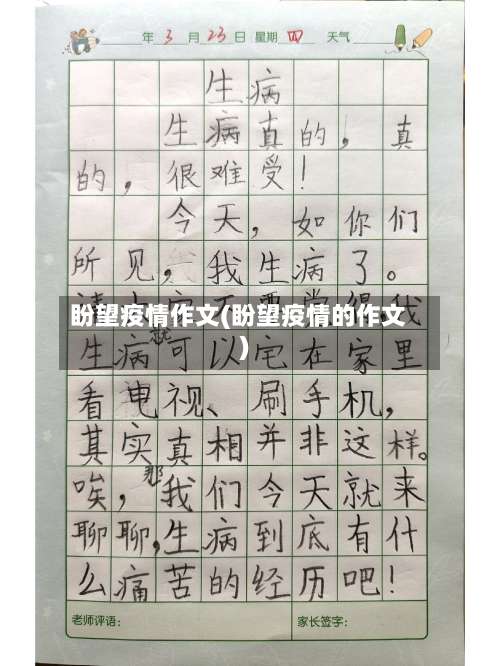 年 3 月 23 日 星期 四 天气
生病
生病真的，真
的，很难受！
今天，如你们
所见，我生病了。
盼望疫情作文(盼望疫情的作文
)
生病就可以宅在家里
看电视、刷手机，
其实真相并非这样。
唉，那我们今天就来
聊聊，生病到底有什
么痛苦的经历吧！
老师评语： 家长签字：